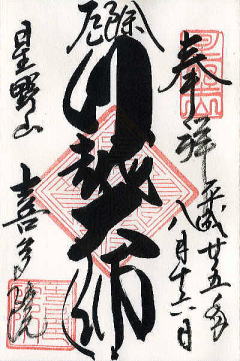 奉拝
平成廿五年
八月十六日
厄除
川越大師
星野山
喜多院